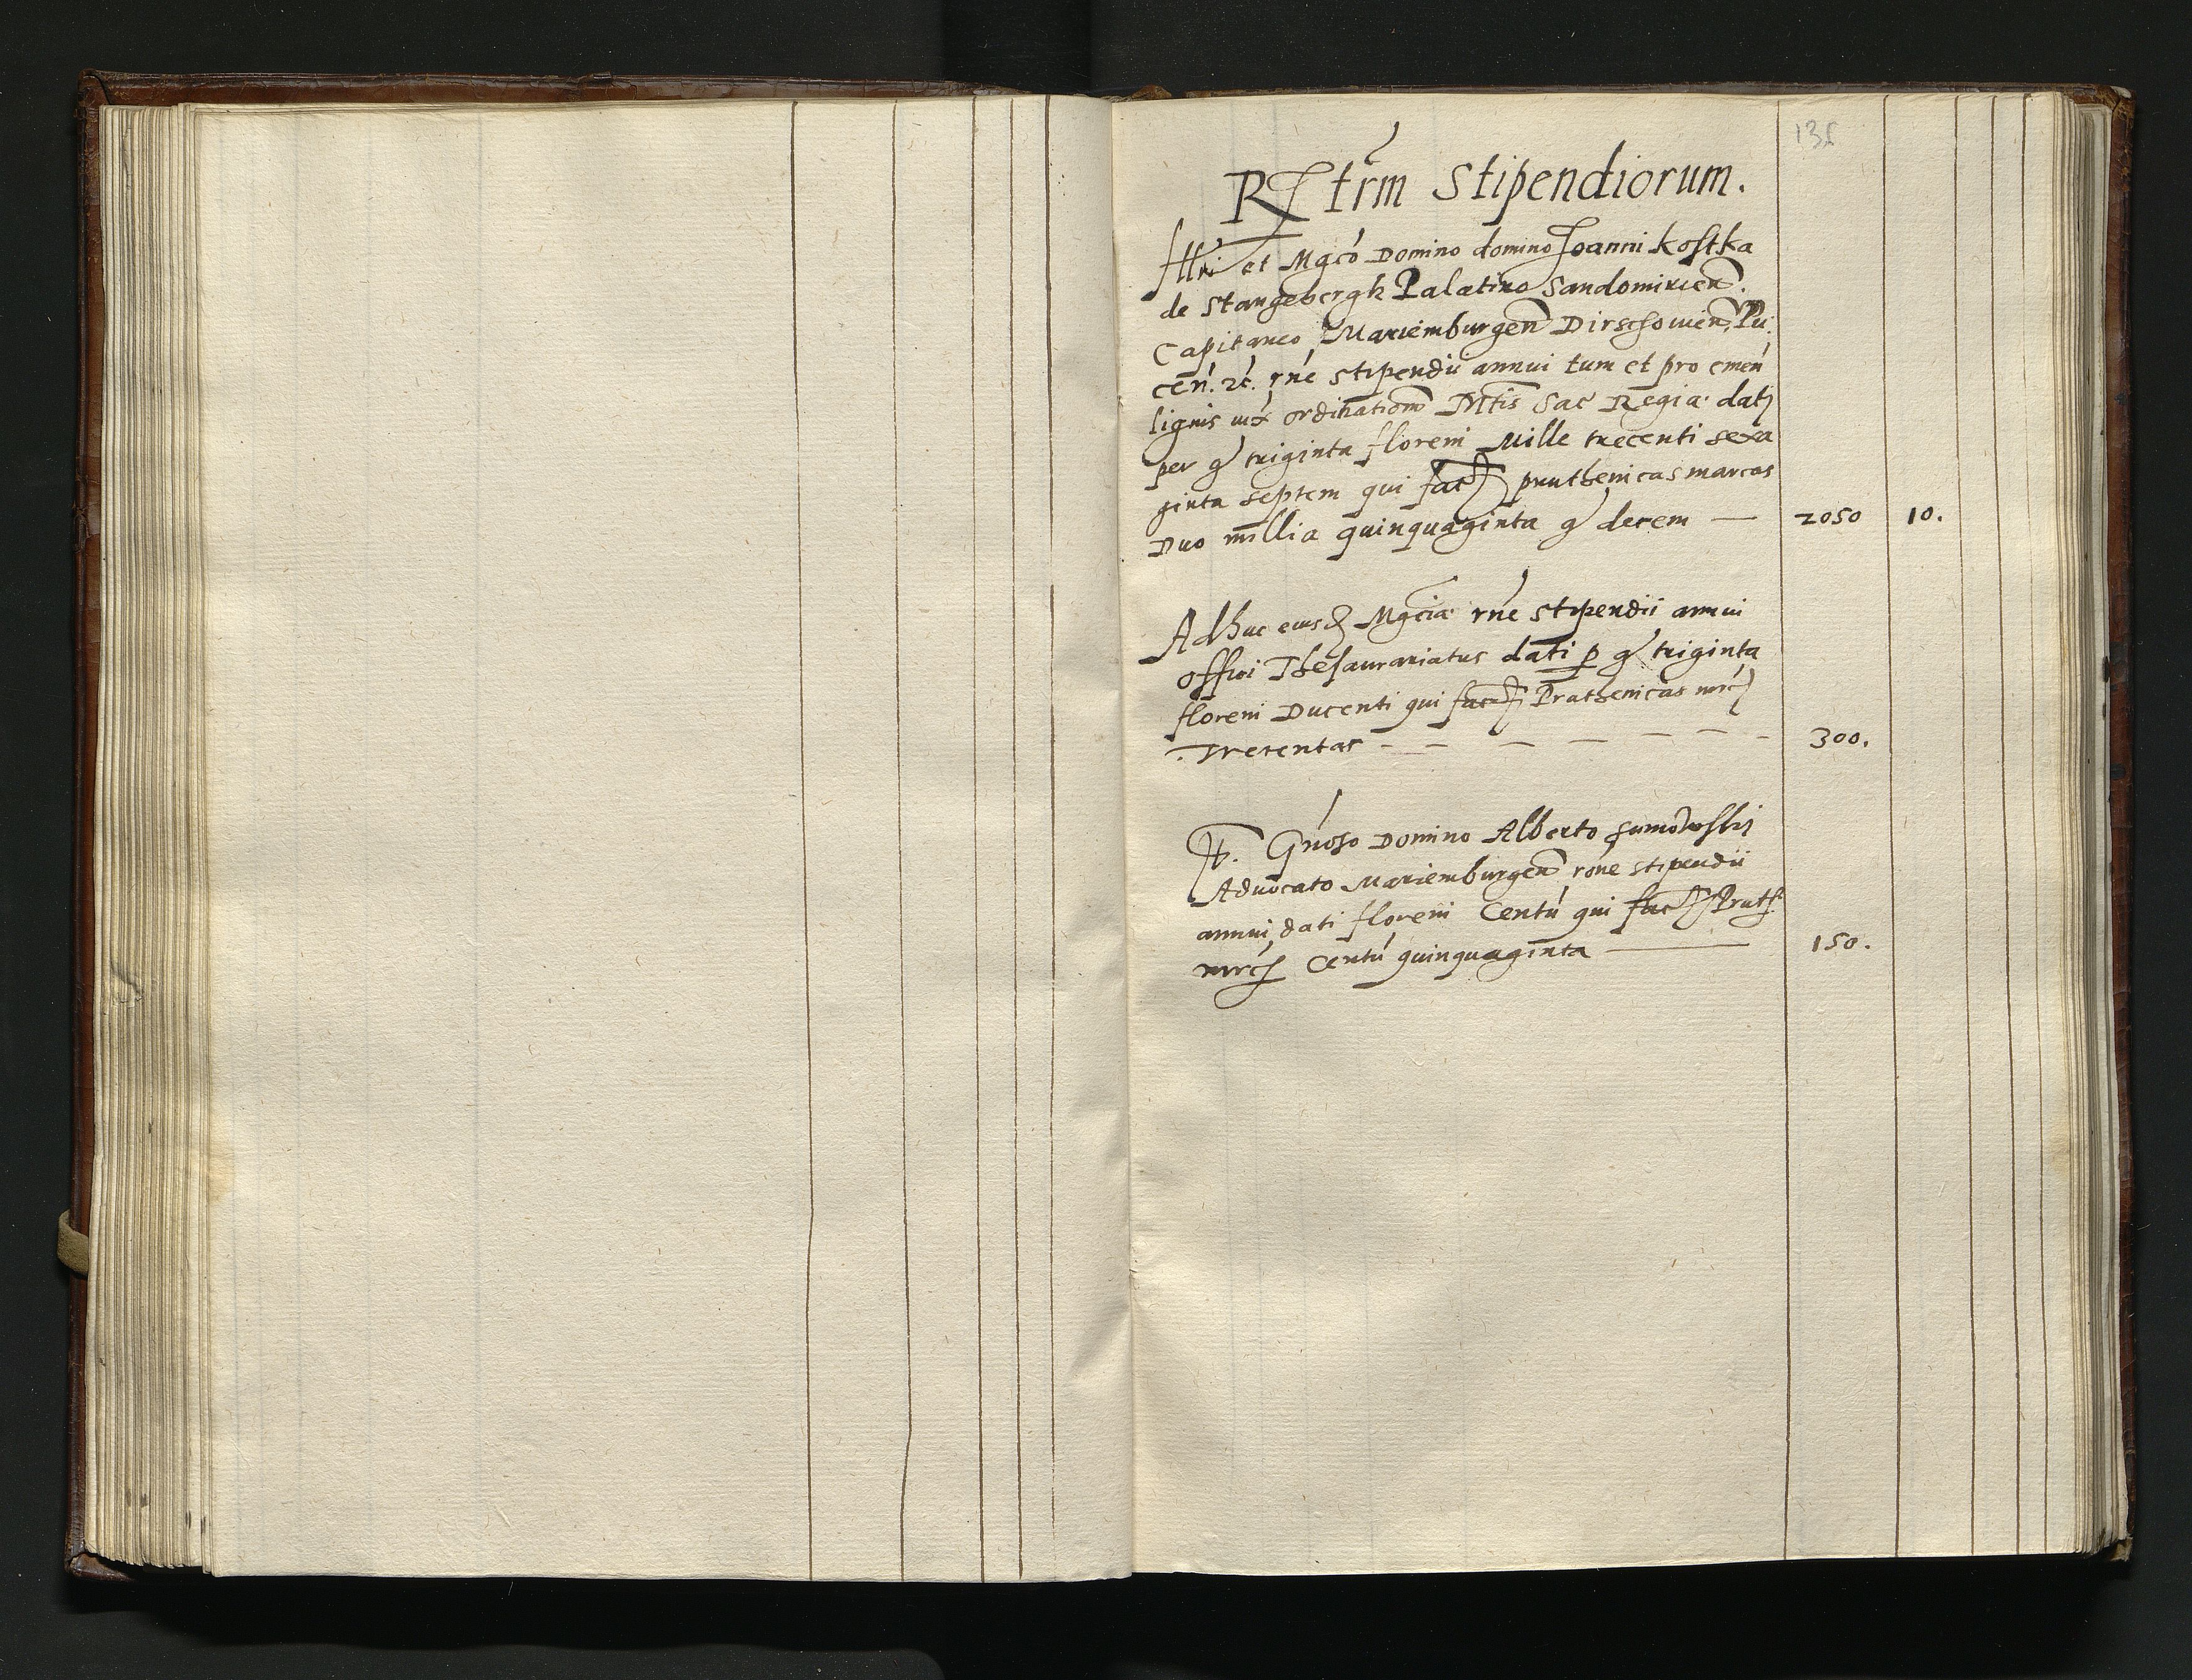 135
Rgtrm Stipendiorum.
Illri et Mgco Domino domino Joanni Kostka
de Stangebergk Palatino Sandomirien.
Capitaneo Mariemburgen Dirschouien, Pu,
cen. zc. rne stipendii annui tum et pro emen
lignis iux ordinationem Mtis Sac Regia datj
per g triginta floreni Mille trecenti sexa
ginta septem qui fact pruthenicas marcas
Duo millia quinquaginta g decem — 2050 10.
Adhuc eiusd Mgcia rne stipendii annui
offici Thesaurariatus dati p g triginta
floreni Ducenti qui fact Pruthenicas mrc
Trecentas - — — — — — - 300.
It. Gnoso Domino Alberto
Aduocato Mariemburgen rone stipendii
annui dati floreni Centu qui fact Pruth
mrc Centu quinquaginta — 150.